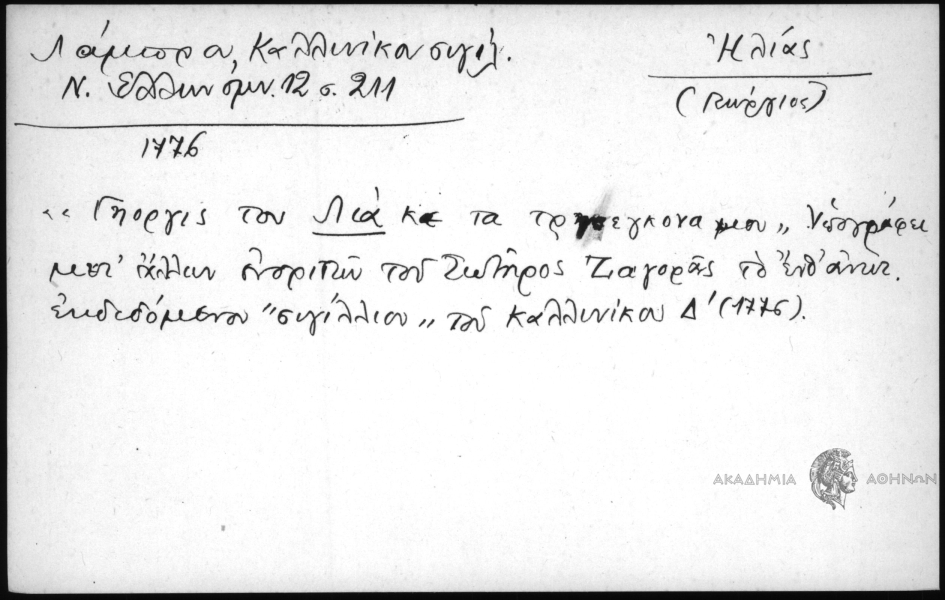 Λάμπρα, Καλλινίκου σιγίλ.
Ν. Ἑλλην ὁμν. 12 σ. 211
Ἠλίας
(Γεώργιος)
1776
"Γηοργις του Λιά κε τα τρησεγκονα μου„ Ὑπογράφει
μετ' ἄλλων τοῦ Σωτῆρος Ζαγορᾶς τὸ
ἐκδεδόμενον "σιγίλλιον„ τοῦ Καλλινίκου Δ' (1776).
ΑΚΑΔΗΜΙΑ ΑΘΗΝΩΝ